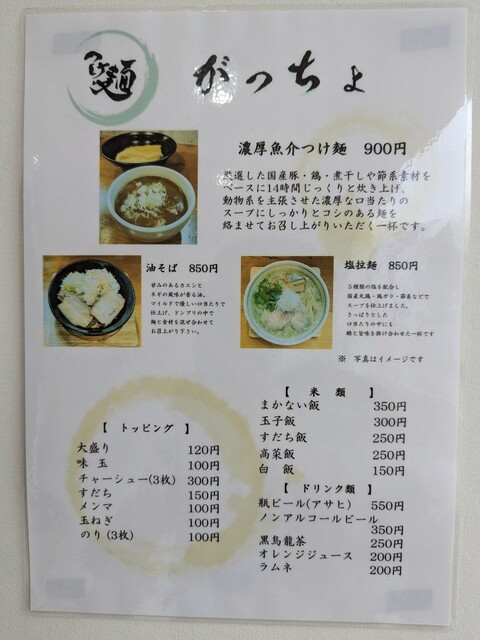 つけ麺
がっちょ
濃厚魚介つけ麺 900円
厳選した国産豚・鶏・煮干しや節系素材を
ベースに14時間じっくりと炊き上げ、
動物系を主張させた濃厚な口当たりの
スープにしっかりとコシのある麺を
絡ませてお召し上がりいただく一杯です。
油そば 850円
甘みのあるカエシと
ネギの風味が香る油。
マイルドで優しい口当たりで
仕上げ、ドンブリの中で
麺と食材を混ぜ合わせて
お召上がり下さい。
塩拉麺 850円
5種類の塩を配合し
国産丸鶏・鶏ガラ・節系などで
スープを仕上げました。
さっぱりとした
口当たりの中にも
麺と旨味を掛け合わせた一杯です
※ 写真はイメージです
【 トッピング 】
大盛り 120円
味玉 100円
チャーシュー(3枚) 300円
すだち 150円
メンマ 100円
玉ねぎ 100円
のり(3枚) 100円
【 米類 】
まかない飯 350円
玉子飯 300円
すだち飯 250円
高菜飯 250円
白飯 150円
【 ドリンク類 】
瓶ビール(アサヒ) 550円
ノンアルコールビール
350円
黒烏龍茶 250円
オレンジジュース 200円
ラムネ 200円